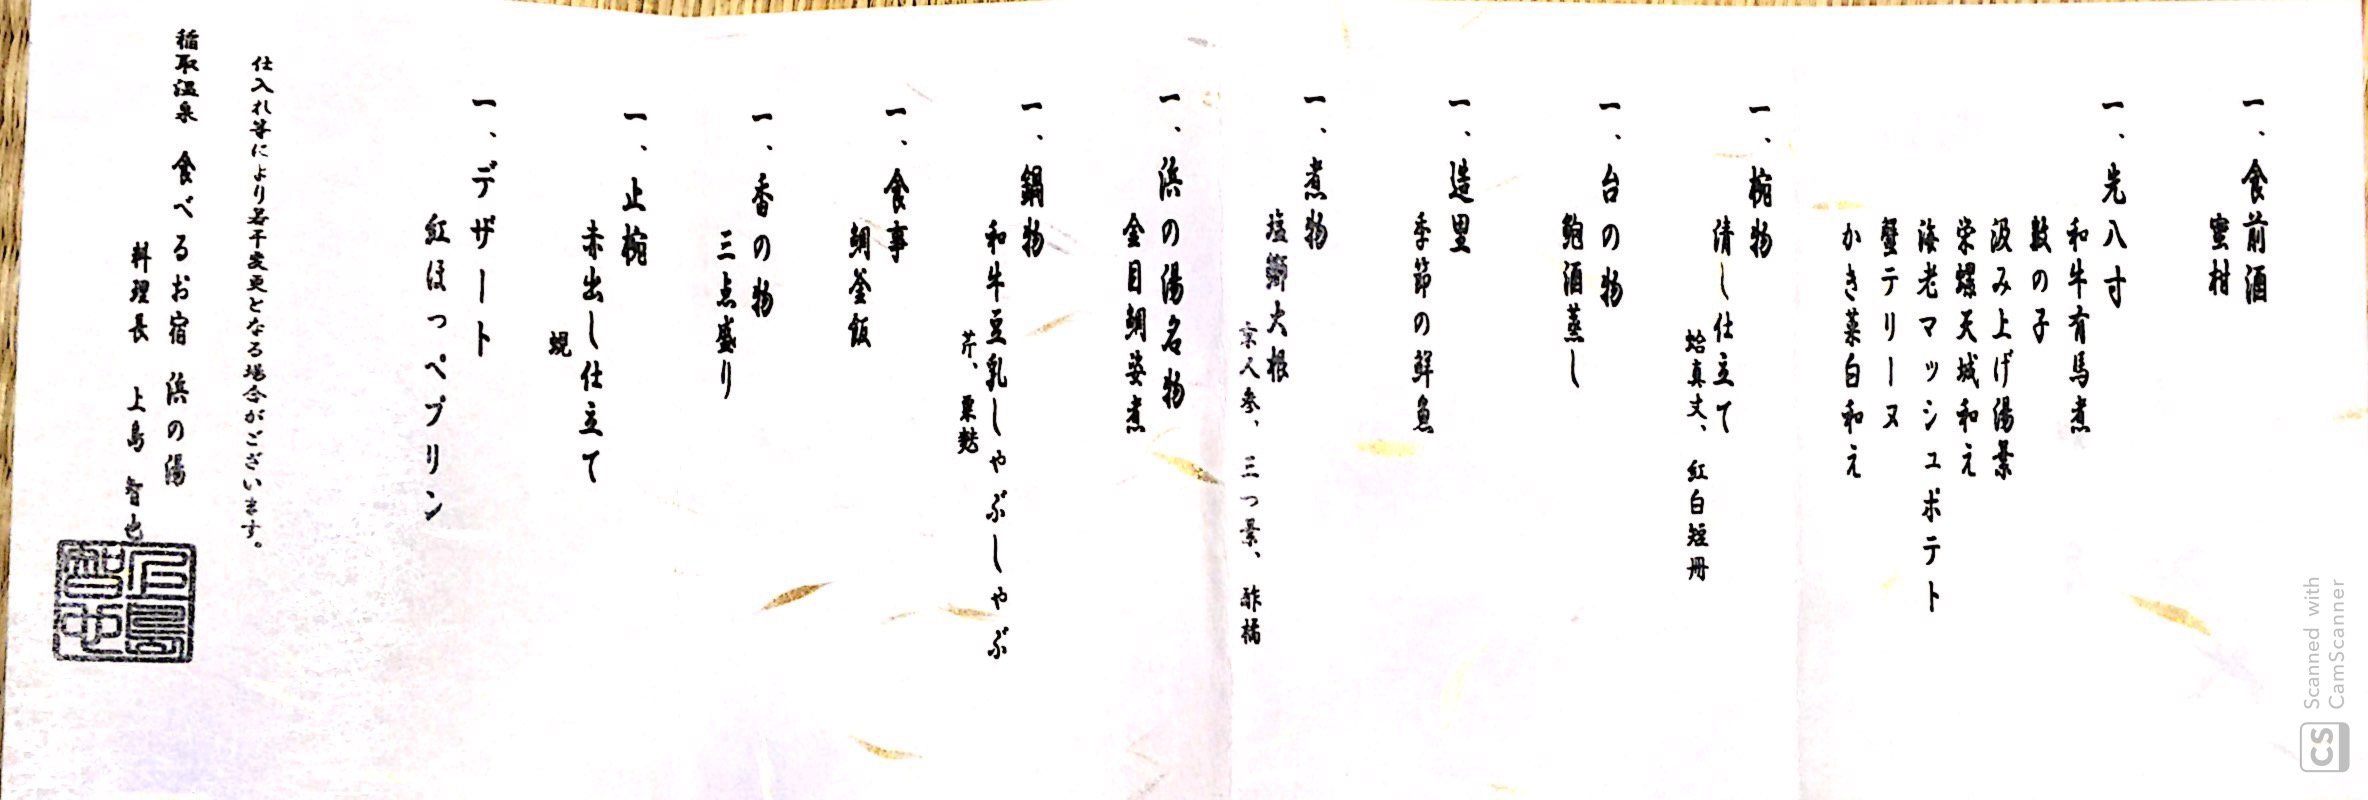 一、食前酒
蜜柑
一、先八寸
和牛有馬煮
数の子
汲み上げ湯葉
栄螺天城和え
海老マッシュポテト
蟹テリーヌ
かき菜白和え
一、椀物
清し仕立て
蛤真丈、紅白短冊
一、台の物
鮑酒蒸し
一、造里
季節の鮮魚
一、煮物
塩鰤大根
京人参、三つ葉、酢橘
一、浜の湯名物
金目鯛姿煮
一、鍋物
和牛豆乳しゃぶしゃぶ
芹、粟麩
一、食事
鯛釜飯
一、香の物
三点盛り
一、止椀
赤出し仕立て
蜆
一、デザート
紅ほっぺプリン
仕入れ等により若干変更となる場合がございます。
稲取温泉 食べるお宿 浜の湯
料理長 上島 智也
Scanned with
CamScanner
CS